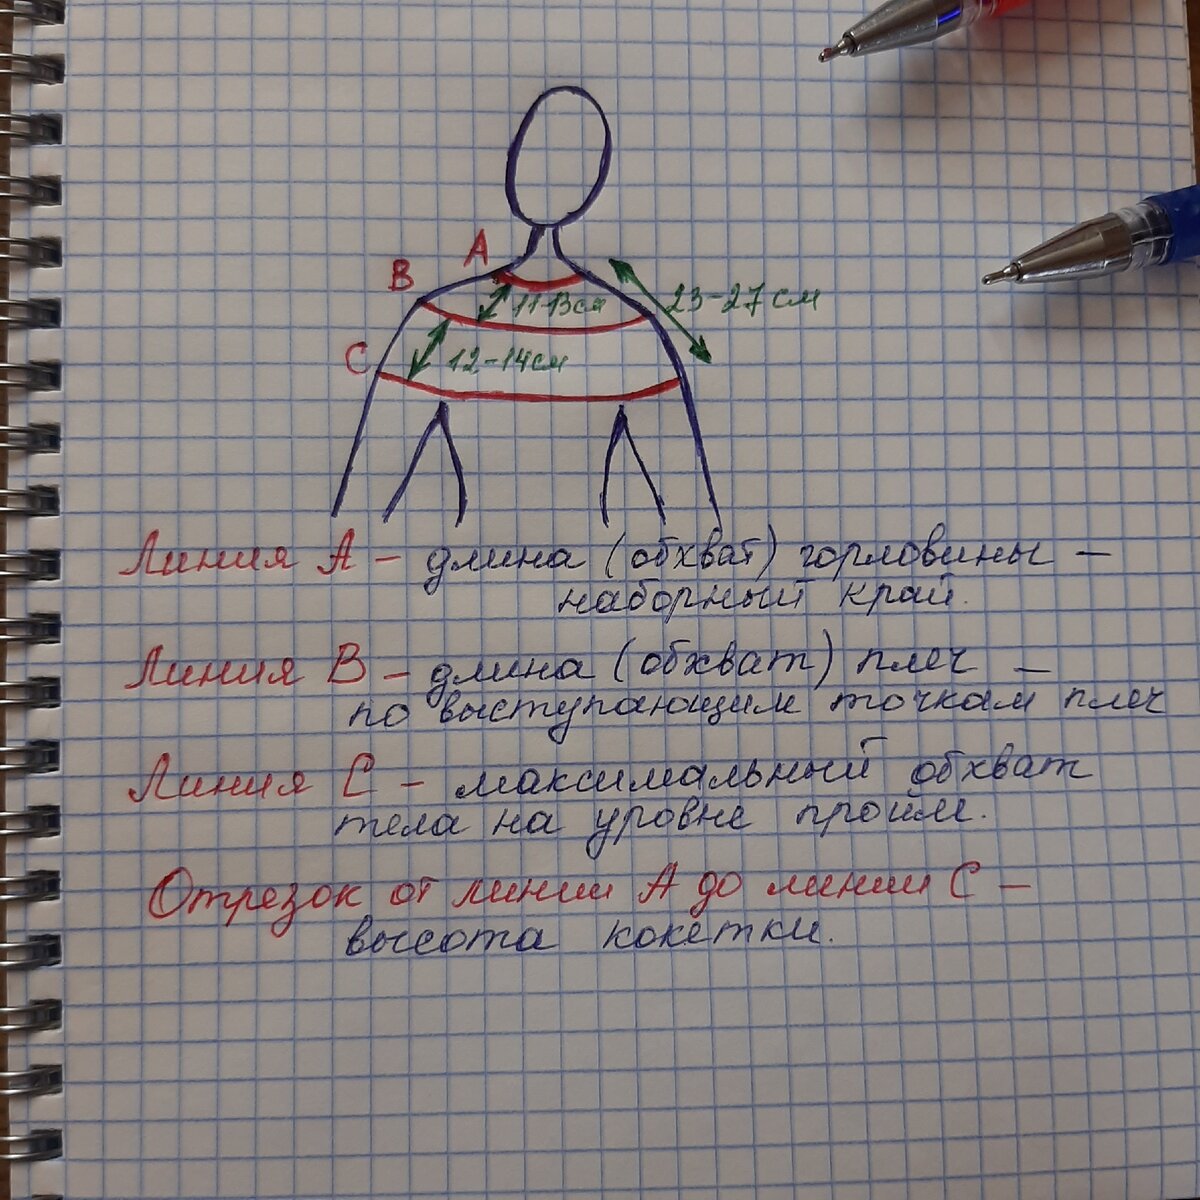 A
B
11-13см
23-27 см
C
12-14см
Линия А – длина (обхват) горловины –
наборный край.
Линия В – длина (обхват) плеч –
по выступающим точкам плеч
Линия С – максимальный обхват
тела на уровне пройм.
Отрезок от линии А до линии С –
высота кокетки.